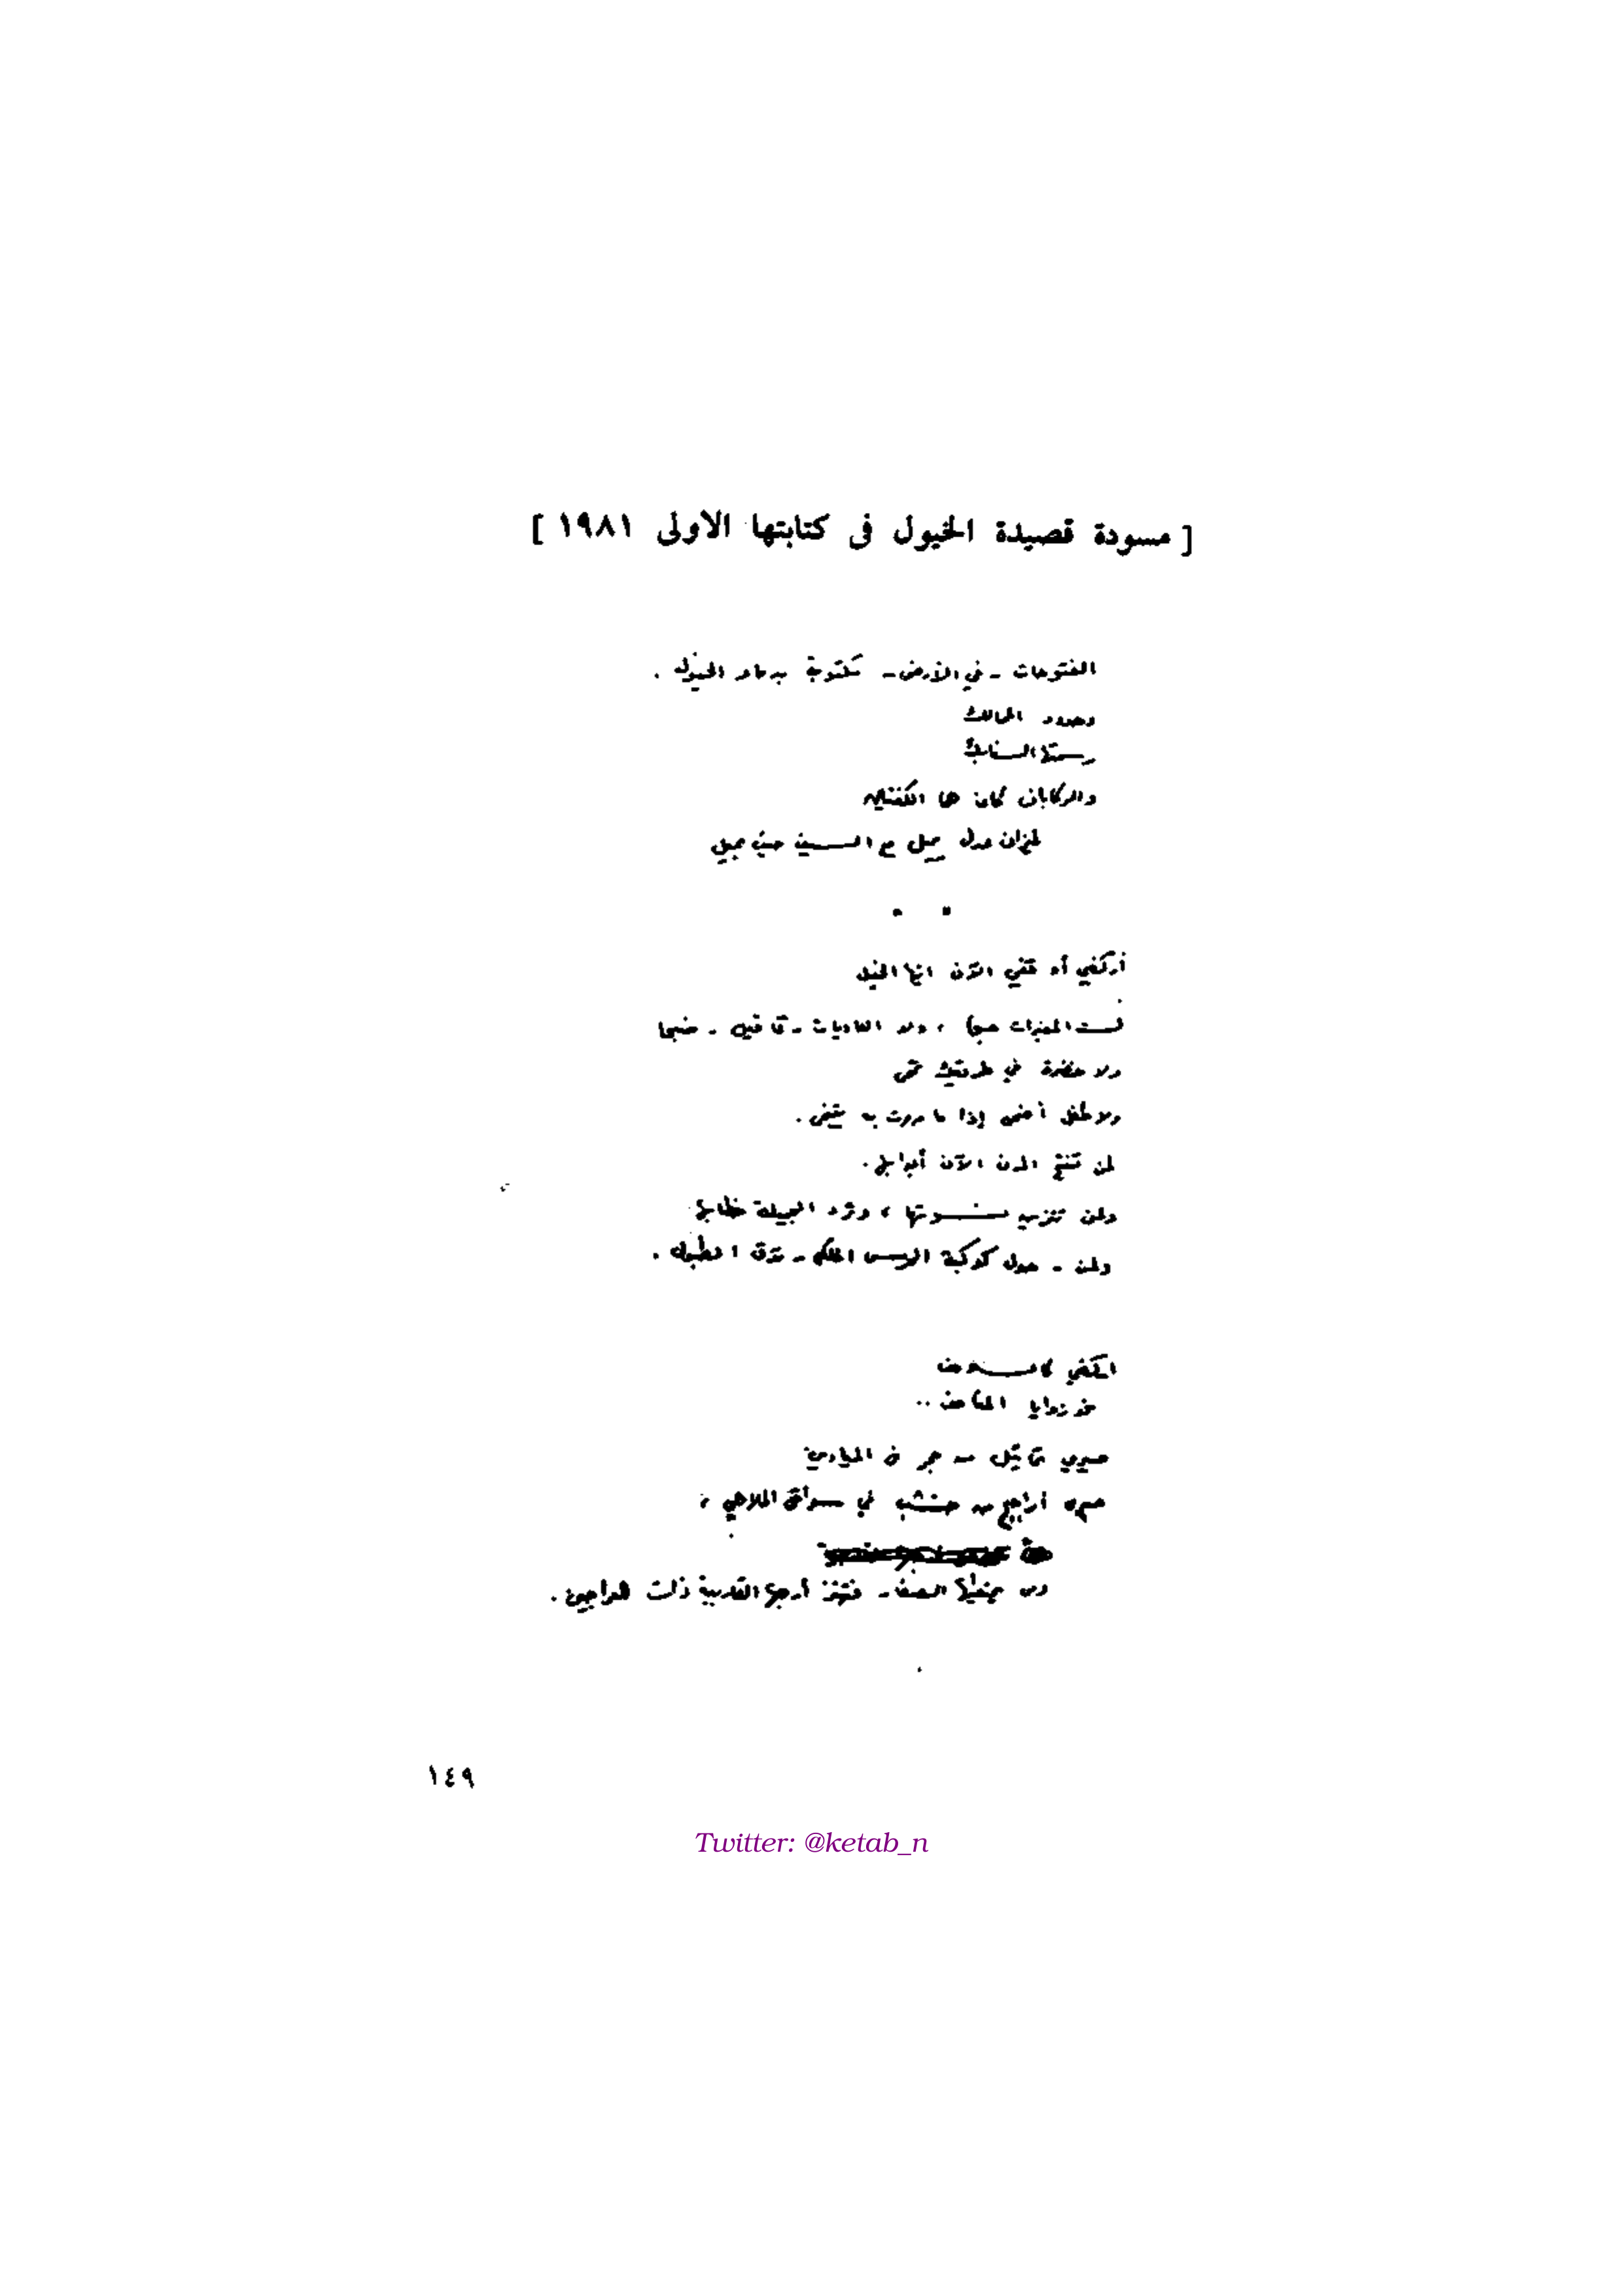 [ مسودة قصيدة الخيول فى كتابتها الاولى ١٩٨١ ]
الفتوحات - في الأرض - مكتوبة بدماء الخيول .
وحدود الممالك
رسمتها السنابك
والركابان كانا هما الكفتان
لميزان عدل يميل مع السيف حيث يميل
أركضي أو قفي الآن أيها الخيل
لست المغيرات صبحا ، ولا العاديات - كما قيل - ضبحا
ولا خضرة في طريقك تمحى
ولا طفل أضحى إذا ما مررت به يتنحى .
لن تفتح المدن الآن أبوابها .
ولن ، وترد الجميلة خطابها
ولن - حول كوكبة الحرس الملكي - تدق الطبول .
اركضي كالسلاحف
نحو زوايا المتاحف ..
صيري تماثيل من حجر في الميادين
صيري أراجيح من خشب في الملاهي ،
أرجلها الخشبية ذات
١٤٩
Twitter: @ketab_n